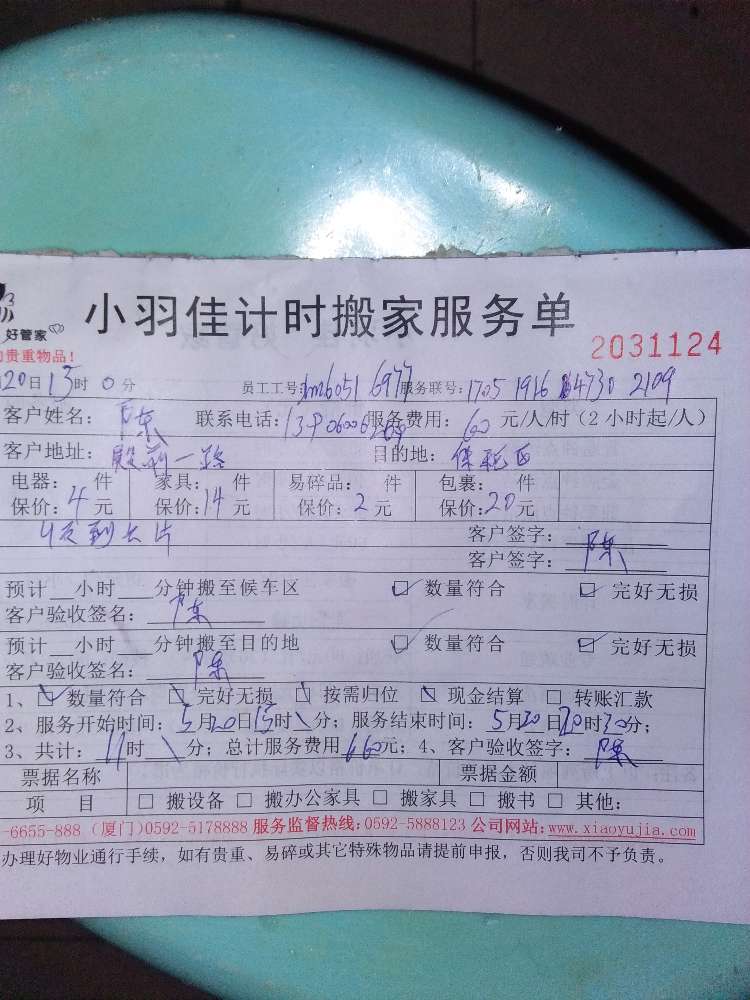 小羽佳计时搬家服务单
好管家
贵重物品!
2031124
20日15时0分 员工工号: 服务联号:
客户姓名: 陈 联系电话: 服务费用: 60 元/人/时(2小时起/人)
客户地址: 殿前一路 目的地: 保税区
电器: 件 家具: 件 易碎品: 件 包裹: 件
保价: 4 元 保价: 14 元 保价: 2 元 保价: 20 元
客户签字:
客户签字: 陈
预计__小时___分钟搬至候车区 数量符合 完好无损
客户验收签名: 陈
预计__小时___分钟搬至目的地 数量符合 完好无损
客户验收签名: 陈
1、 数量符合 完好无损 按需归位 现金结算 转账汇款
2、服务开始时间: 5月20日15时 分; 服务结束时间: 5月20日20时30分;
3、共计: 11时 分; 总计服务费用 660元; 4、客户验收签字: 陈
票据名称 票据金额
项 目 搬设备 搬办公家具 搬家具 搬书 其他:
-6655-888 (厦门)0592-5178888 服务监督热线:0592-5888123 公司网站:www.xiaoyujia.com
办理好物业通行手续,如有贵重、易碎或其它特殊物品请提前申报,否则我司不予负责。